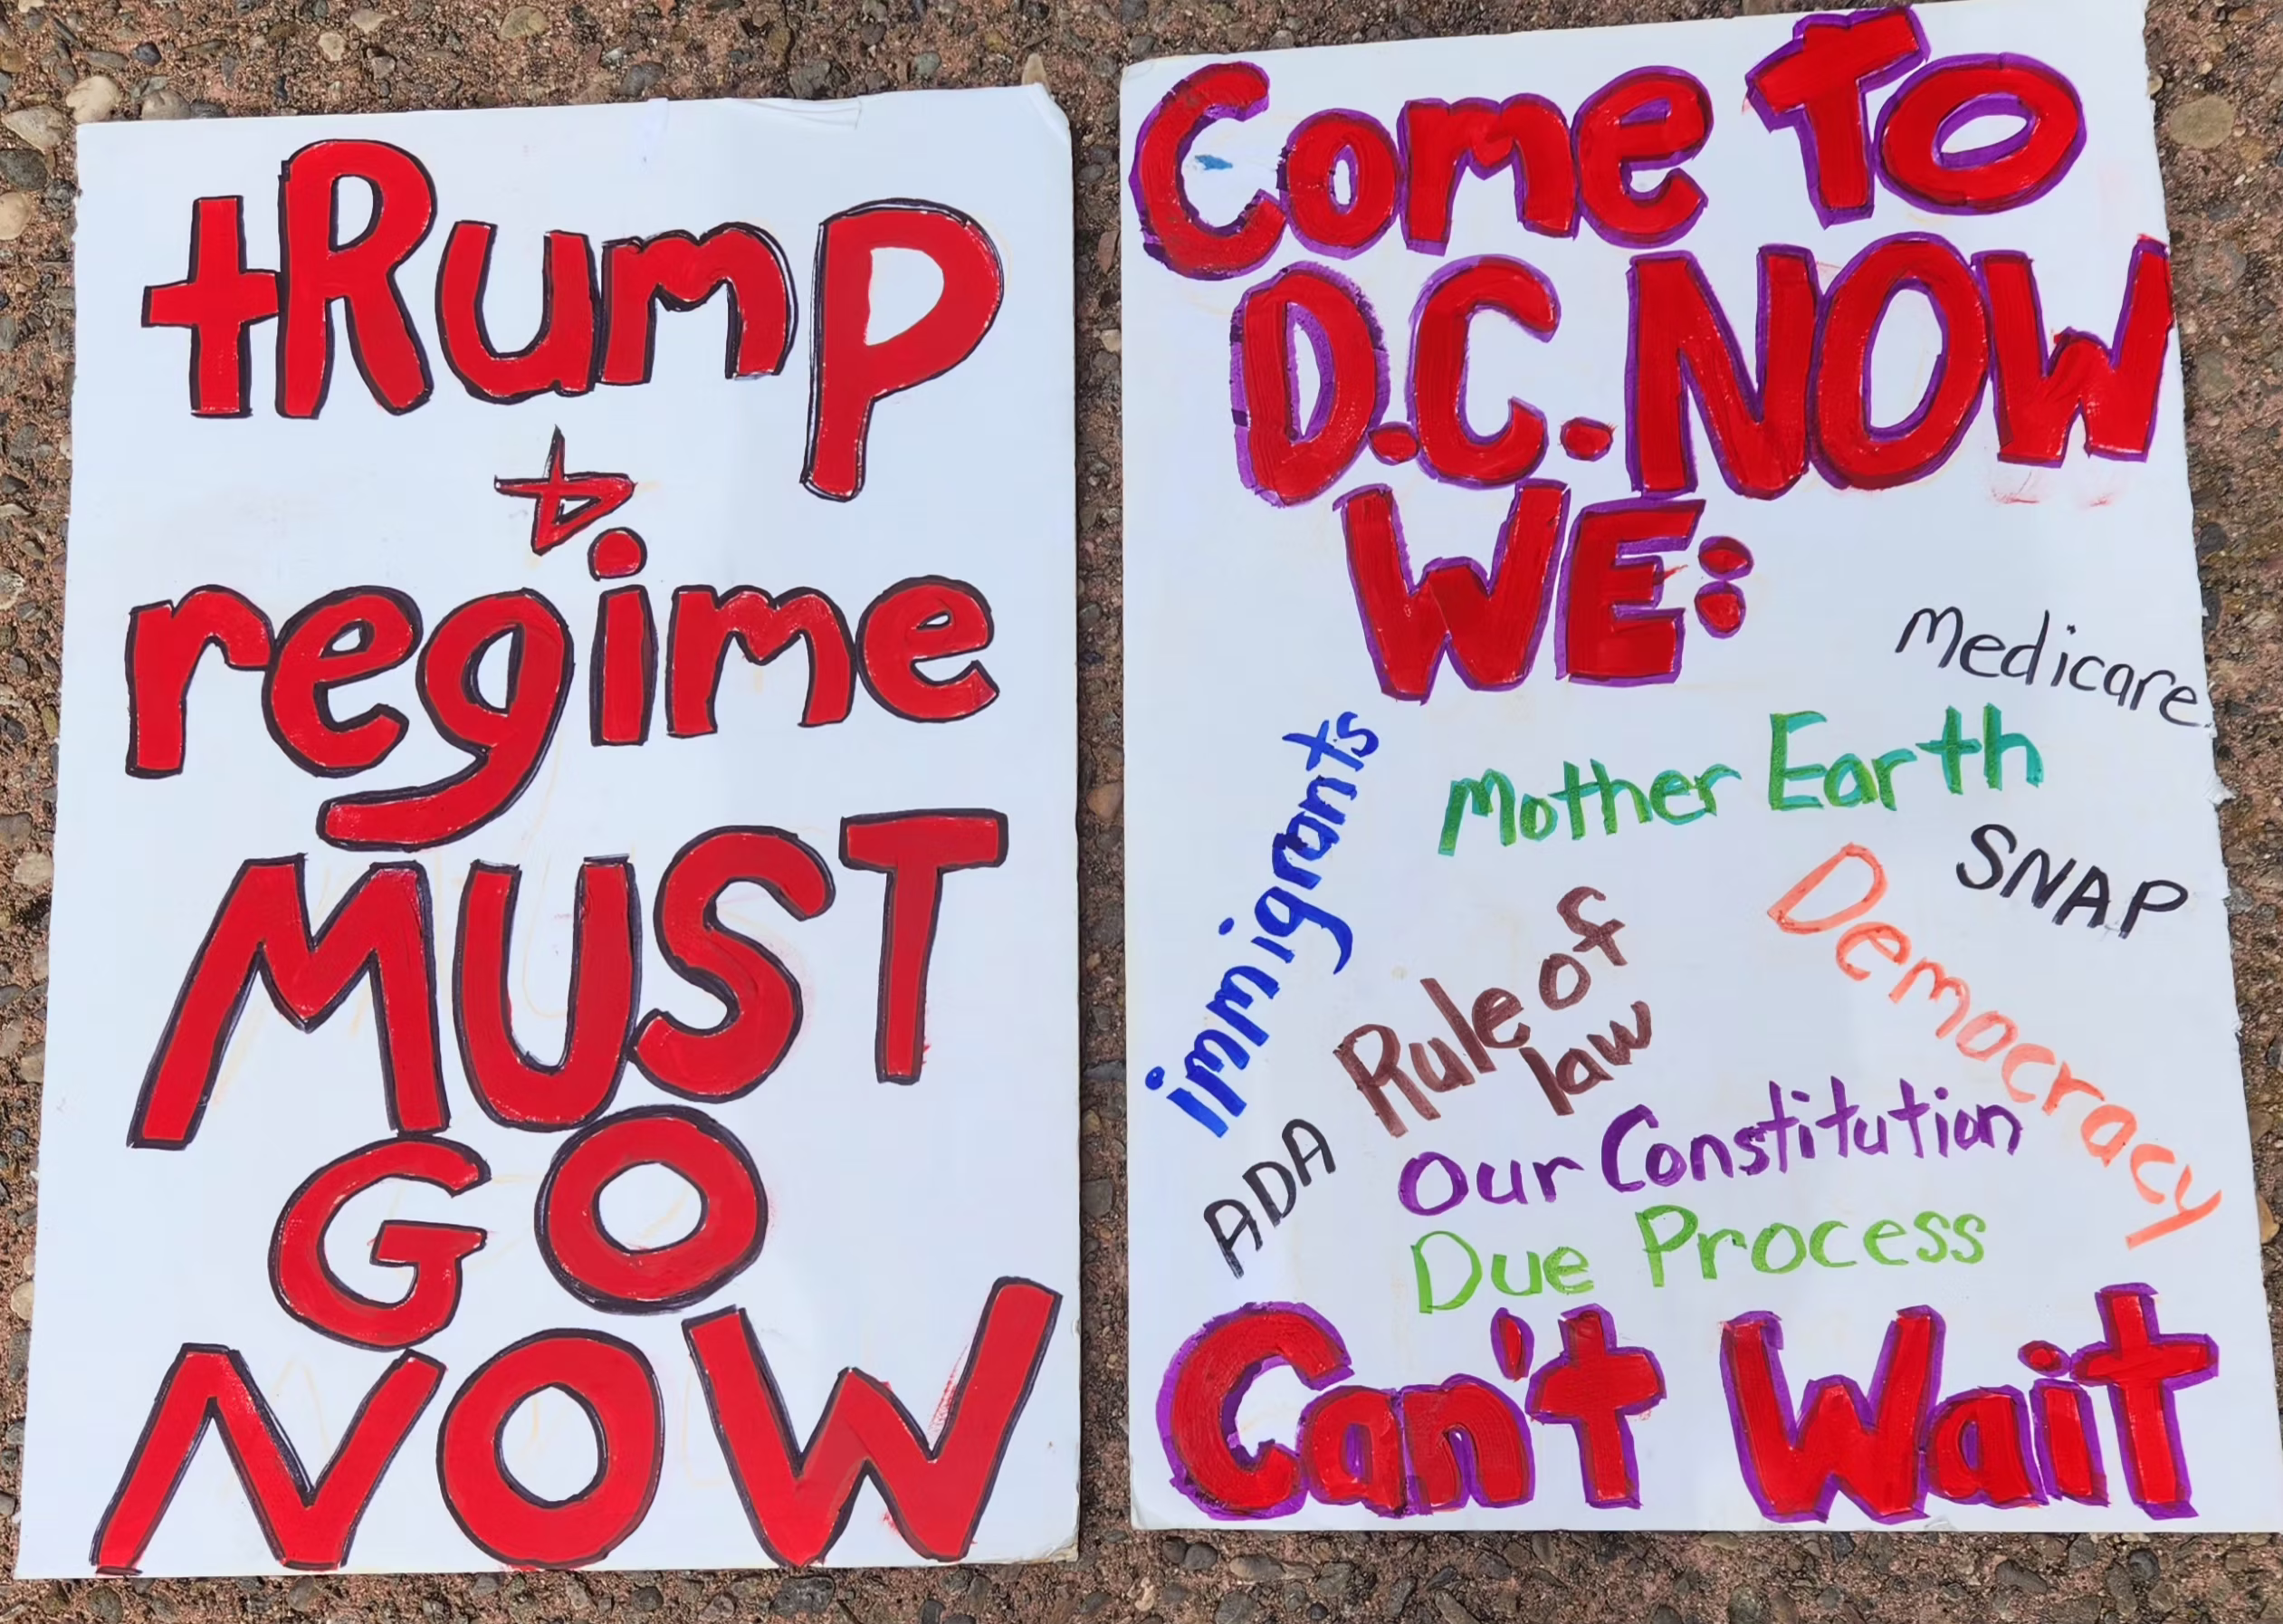 tRump
&
regime
MUST
GO
NOW
Come To
D.C. NOW
WE:
Medicare
Mother Earth
immigrants
SNAP
Democracy
Rule of
law
ADA
Our Constitution
Due Process
Can't Wait